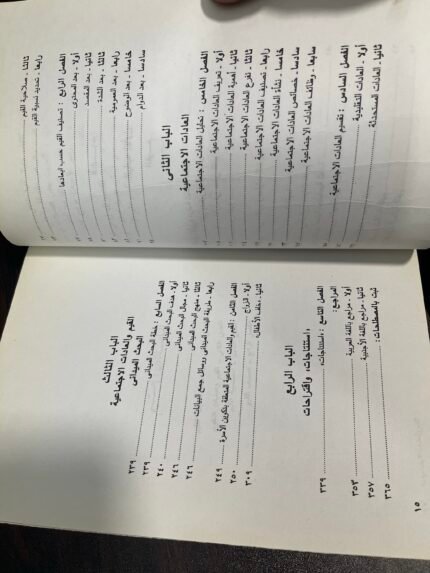 ثالثا ـ صلاحية القيم
رابعا ـ تحديد نسبية القيم
الفصل الرابع : تصنيف القيم حسب ابعادها
أولا ـ بعد المحتوى
ثانيا ـ بعد المقصد
ثالثا ـ بعد الشدة
رابعا ـ بعد العمومية
خامسا ـ بعد الوضوح
سادسا ـ بعد الدوام
الباب الثانى
العادات الاجتماعية
الفصل الخامس : تحليل العادات الاجتماعية
أولا ـ تعريف العادات الاجتماعية
ثانيا ـ أهمية العادات الاجتماعية
ثالثا ـ تفرع العادات الاجتماعية
رابعا ـ تصنيف العادات الاجتماعية
خامسا ـ نشأة العادات الاجتماعية
سادسا ـ خصائص العادات الاجتماعية
سابعا ـ وظائف العادات الاجتماعية
الفصل السادس : تقسيم العادات الاجتماعية
أولا ـ العادات التقليدية
ثانيا ـ العادات المستحدثة
الباب الثالث
القيم والعادات الاجتماعية
البحث الميدانى ٢٣٩
الفصل السابع : خطة البحث الميدانى ٢٣٩
أولا ـ هدف البحث الميدانى ٢٤٠
ثانيا ـ مجال البحث الميدانى ٢٤٦
ثالثا ـ منهج البحث الميدانى ٢٤٦
رابعا ـ طريقة البحث الميدانى ووسائل جمع البيانات
الفصل الثامن : القيم والعادات الاجتماعية المتعلقة بتكوين الأسرة ٢٤٩
أولا ـ الزواج ٢٥٠
ثانيا ـ الأطفال ٣٠٩
الباب الرابع
استنتاجات، واقتراحات
الفصل التاسع : استنتاجات، ٣٣٩
المراجع:
أولا ـ مراجع باللغة العربية ٣٥٣
ثانيا ـ مراجع باللغة الأجنبية ٣٥٧
ثبت بالمصطلحات: ٣٦٥
١٥